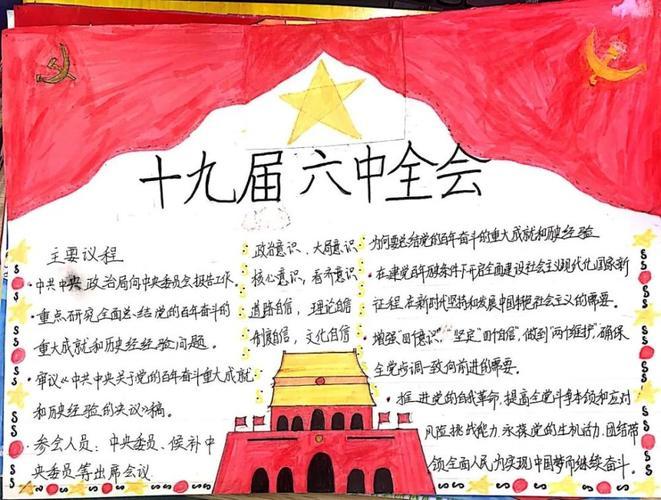 十九届六中全会
主要议程
·中共中央政治局向中央委员会报告工作.
·重点研究全面总结党的百年奋斗的
重大成就和历史经经验问题.
·审议《中共中央关于党的百年奋斗重大成就
和历史经验的决议》稿。
·参会人员:中央委员、候补中
央委员等出席会议
政治意识、大局意识
核心意识、看齐意识
道路自信,理论自信
制度自信,文化自信
为何要总结党的百年奋斗的重大成就和历史经验
·在建党百年历史条件下开启全面建设社会主义现代化国家新
征程,在新时代坚持和发展中国特色社会主义的需要.
·增强"四个意识",坚定"四个自信",做到"两个维护",确保
全党步调一致向前进的需要.
·推进党的自我革命,提高全党斗争本领和应对
风险挑战能力,永葆党的生机活力,团结带
领全面人民为实现中国梦而继续奋斗.